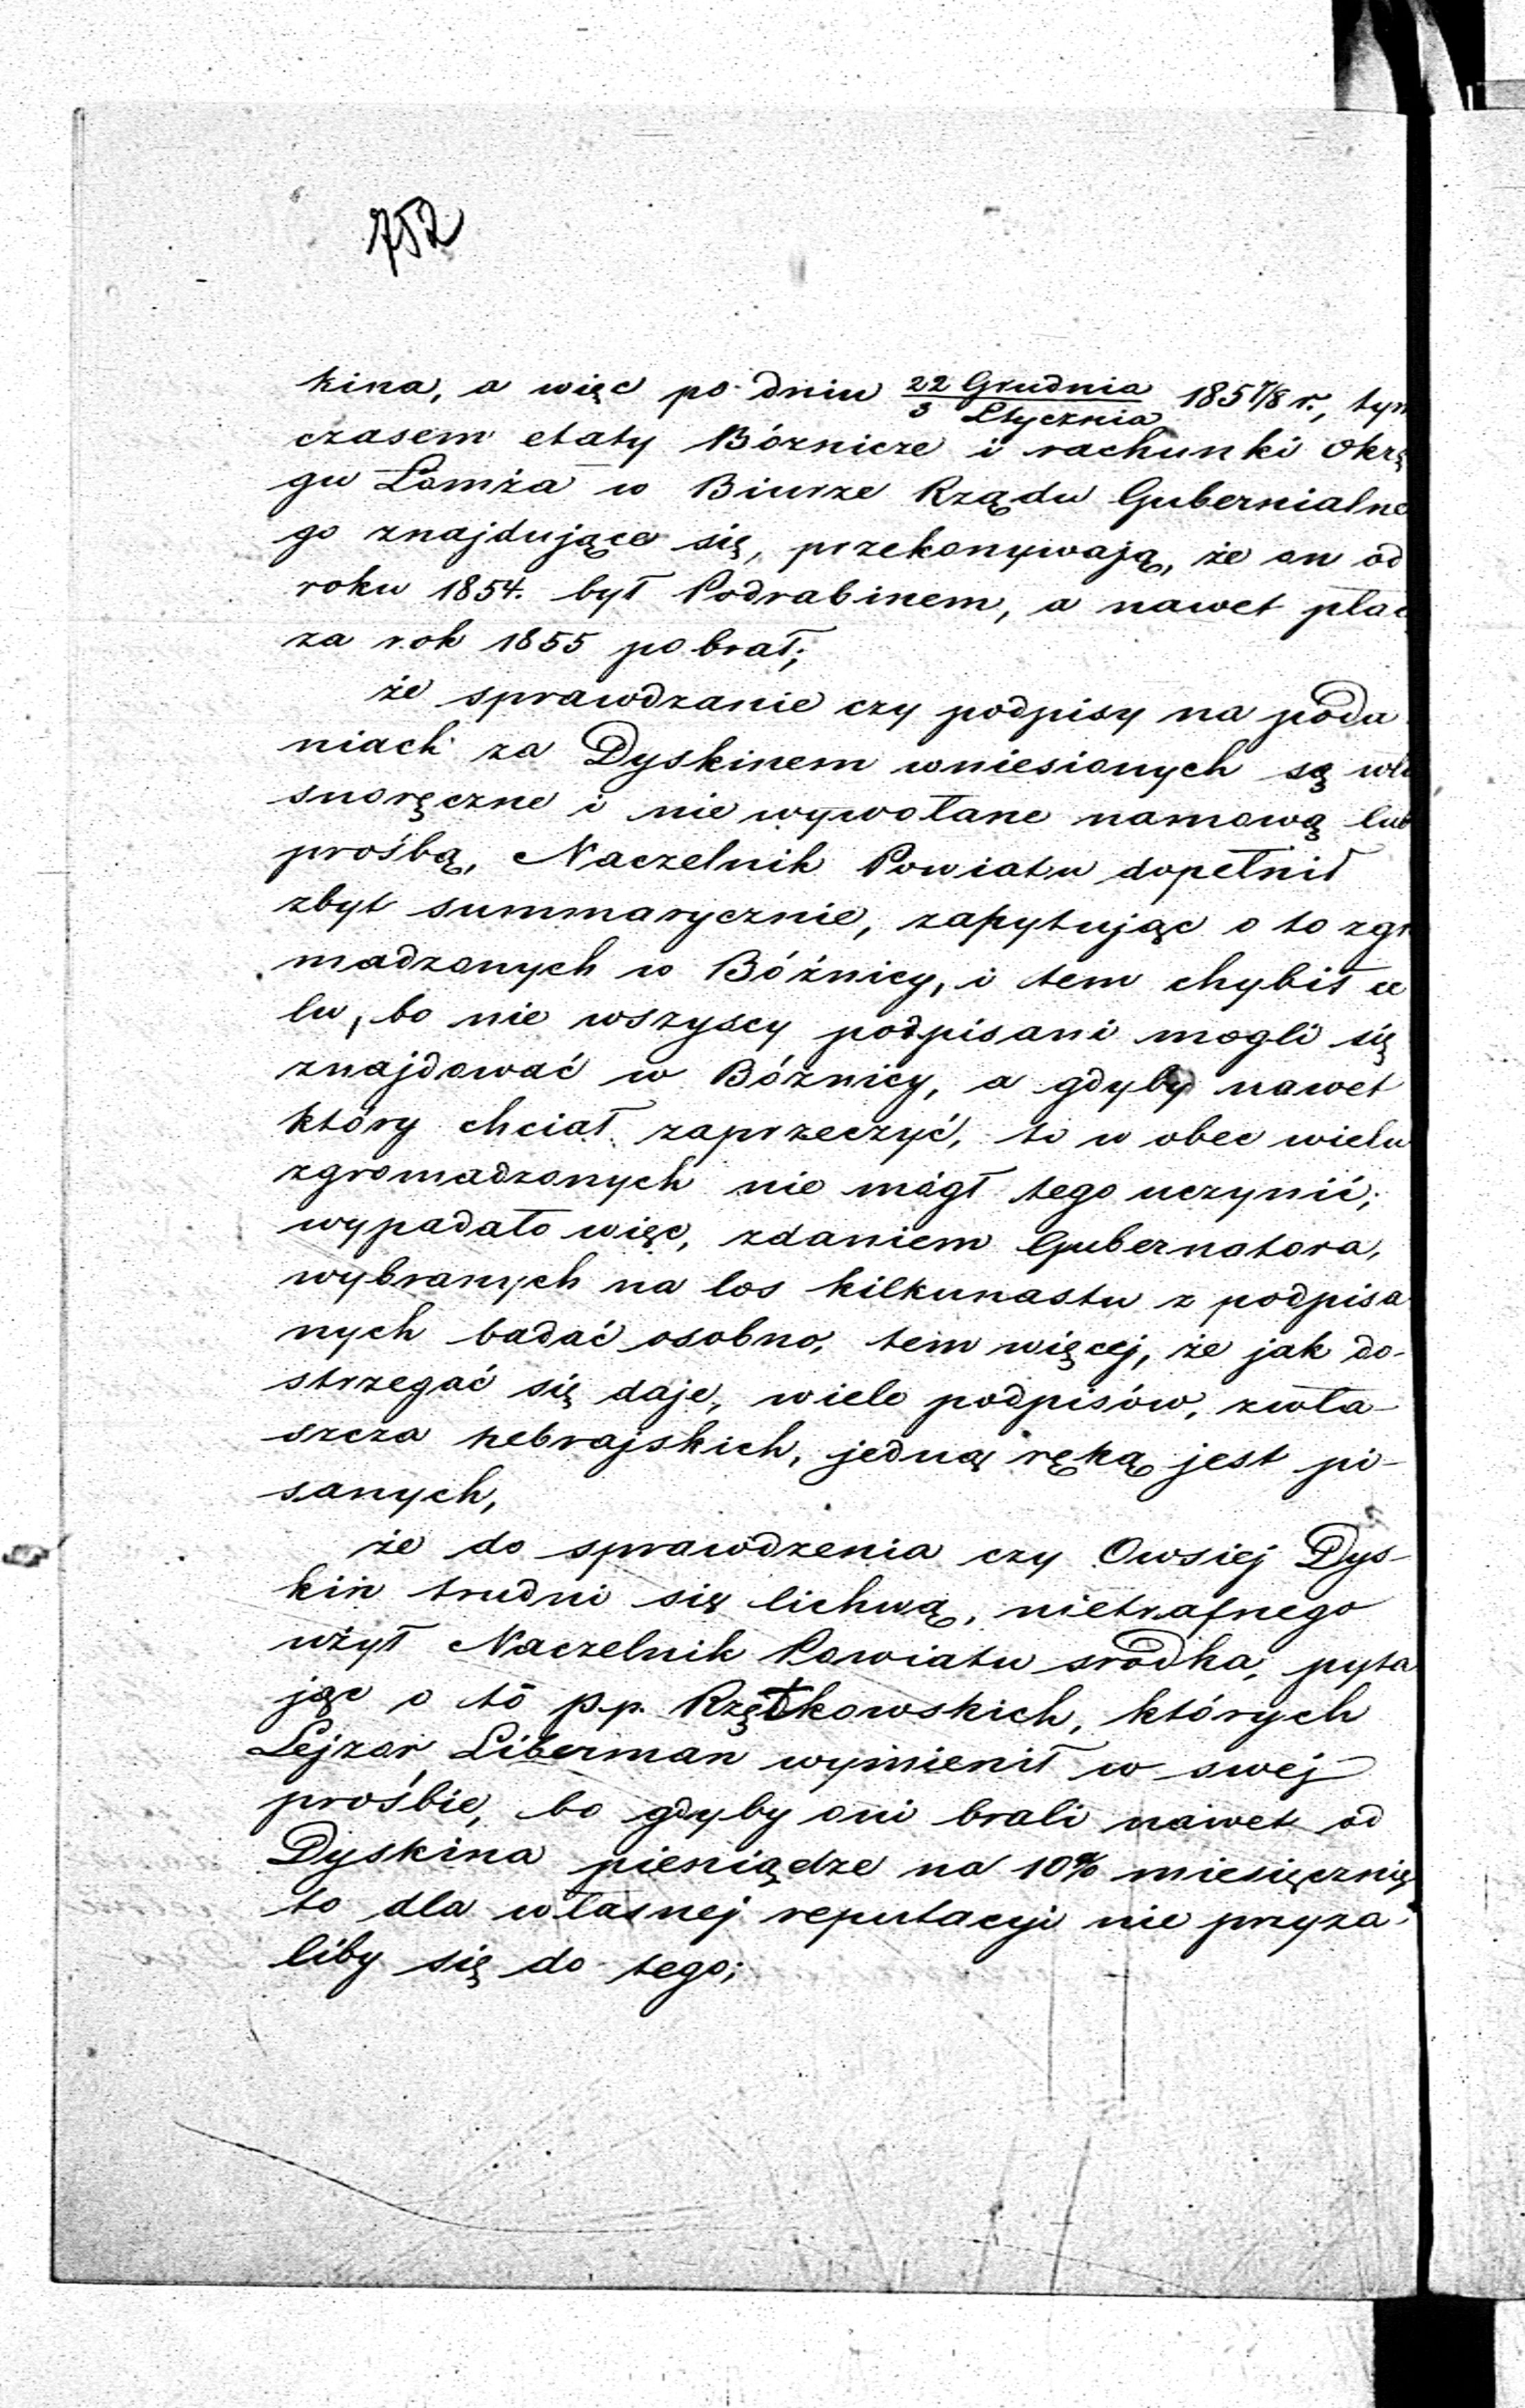 752
kina, a więc po dniu 22 Grudnia / 3 Stycznia 1857/8 r., tym
czasem etaty Bóżnicze i rachunki Okrę
gu Łomża w Biurze Rządu Gubernialne
go znajdujące się, przekonywają, że on od
roku 1854. był Podrabinem, a nawet płac
za rok 1855 pobrał;
że sprawdzanie czy podpisy na poda
niach za Dyskinem wniesionych są wła
snoręczne i nie wywołane namową lub
prośbą, Naczelnik Powiatu dopełnił
zbyt summarycznie, zapytując o to zgro
madzonych w Bóżnicy, i tem chybił ce
lu, bo nie wszyscy podpisani mogli się
znajdować w Bóżnicy, a gdyby nawet
który chciał zaprzeczyć, to w obec wielu
zgromadzonych nie mógł tego uczynić;
wypadało więc, zdaniem Gubernatora,
wybranych na los kilkunastu z podpisa
nych badać osobno, tem więcej, że jak do-
strzegać się daje, wiele podpisów, zwła-
szcza hebrajskich, jedną ręką jest pi-
sanych,
że do sprawdzenia czy Owsiej Dys-
kin trudni się lichwą, nietrafnego
użył Naczelnik Powiatu srodka, pyta
jąc o to p.p. Rzętkowskich, których
Lejzor Liberman wymienił w swej
prośbie, bo gdyby oni brali nawet od
Dyskina pieniądze na 10% miesięcznie
to dla własnej reputacyi nie przyzna
liby się do tego;